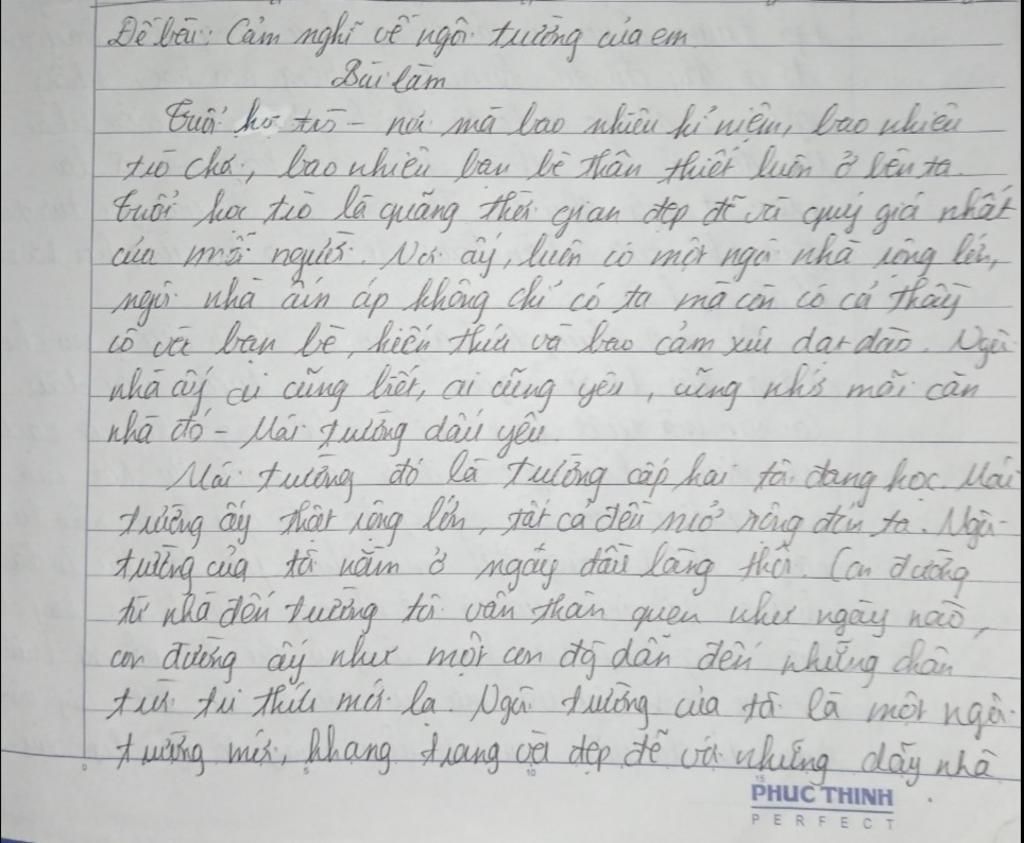 Đề bài: Cảm nghĩ về ngôi trường của em
Bài làm
Tuổi học trò - nơi mà bao nhiêu kỉ niệm, bao nhiêu
trò chơi, bao nhiêu bạn bè thân thiết luôn ở bên ta.
Tuổi học trò là quãng thời gian đẹp đẽ và quý giá nhất
của mỗi người. Nơi ấy, luôn có một ngôi nhà rộng lớn,
ngôi nhà ấm áp không chỉ có ta mà còn có cả thầy
cô và bạn bè, kiến thức và bao cảm xúc dạt dào. Ngôi
nhà ấy ai cũng biết, ai cũng yêu, cũng nhớ mãi căn
nhà đó - Mái trường dấu yêu.
Mái trường đó là trường cấp hai tôi đang học. Mái
trường ấy thật rộng lớn, tất cả đều mở rộng đón ta. Ngôi
trường của tôi nằm ở ngay đầu làng thôi. Con đường
từ nhà đến trường tôi vẫn thân quen như ngày nào,
con đường ấy như một con đò dẫn đến những chân
trời tri thức mới lạ. Ngôi trường của tôi là một ngôi
trường mới, khang trang và đẹp đẽ với những dãy nhà
PHUC THINH
PERFECT